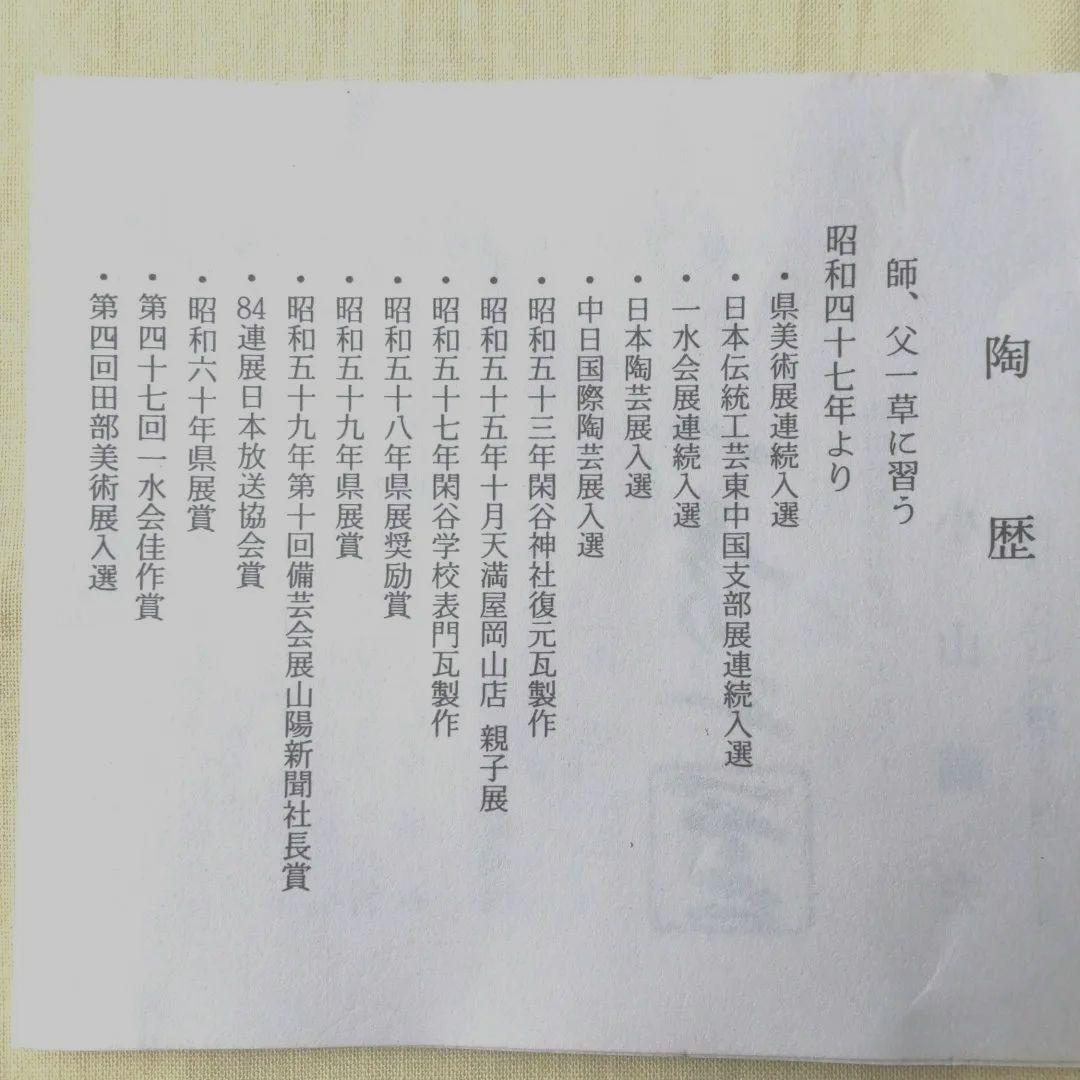 陶歴
師、父一草に習う
昭和四十七年より
・県美術展連続入選
・日本伝統工芸東中国支部展連続入選
・一水会展連続入選
・日本陶芸展入選
・中日国際陶芸展入選
・昭和五十三年閑谷神社復元瓦製作
・昭和五十五年十月天満屋岡山店 親子展
・昭和五十七年閑谷学校表門瓦製作
・昭和五十八年県展奨励賞
・昭和五十九年県展賞
・昭和五十九年第十回備芸会展山陽新聞社長賞
・84連展日本放送協会賞
・昭和六十年県展賞
・第四十七回一水会佳作賞
・第四回田部美術展入選